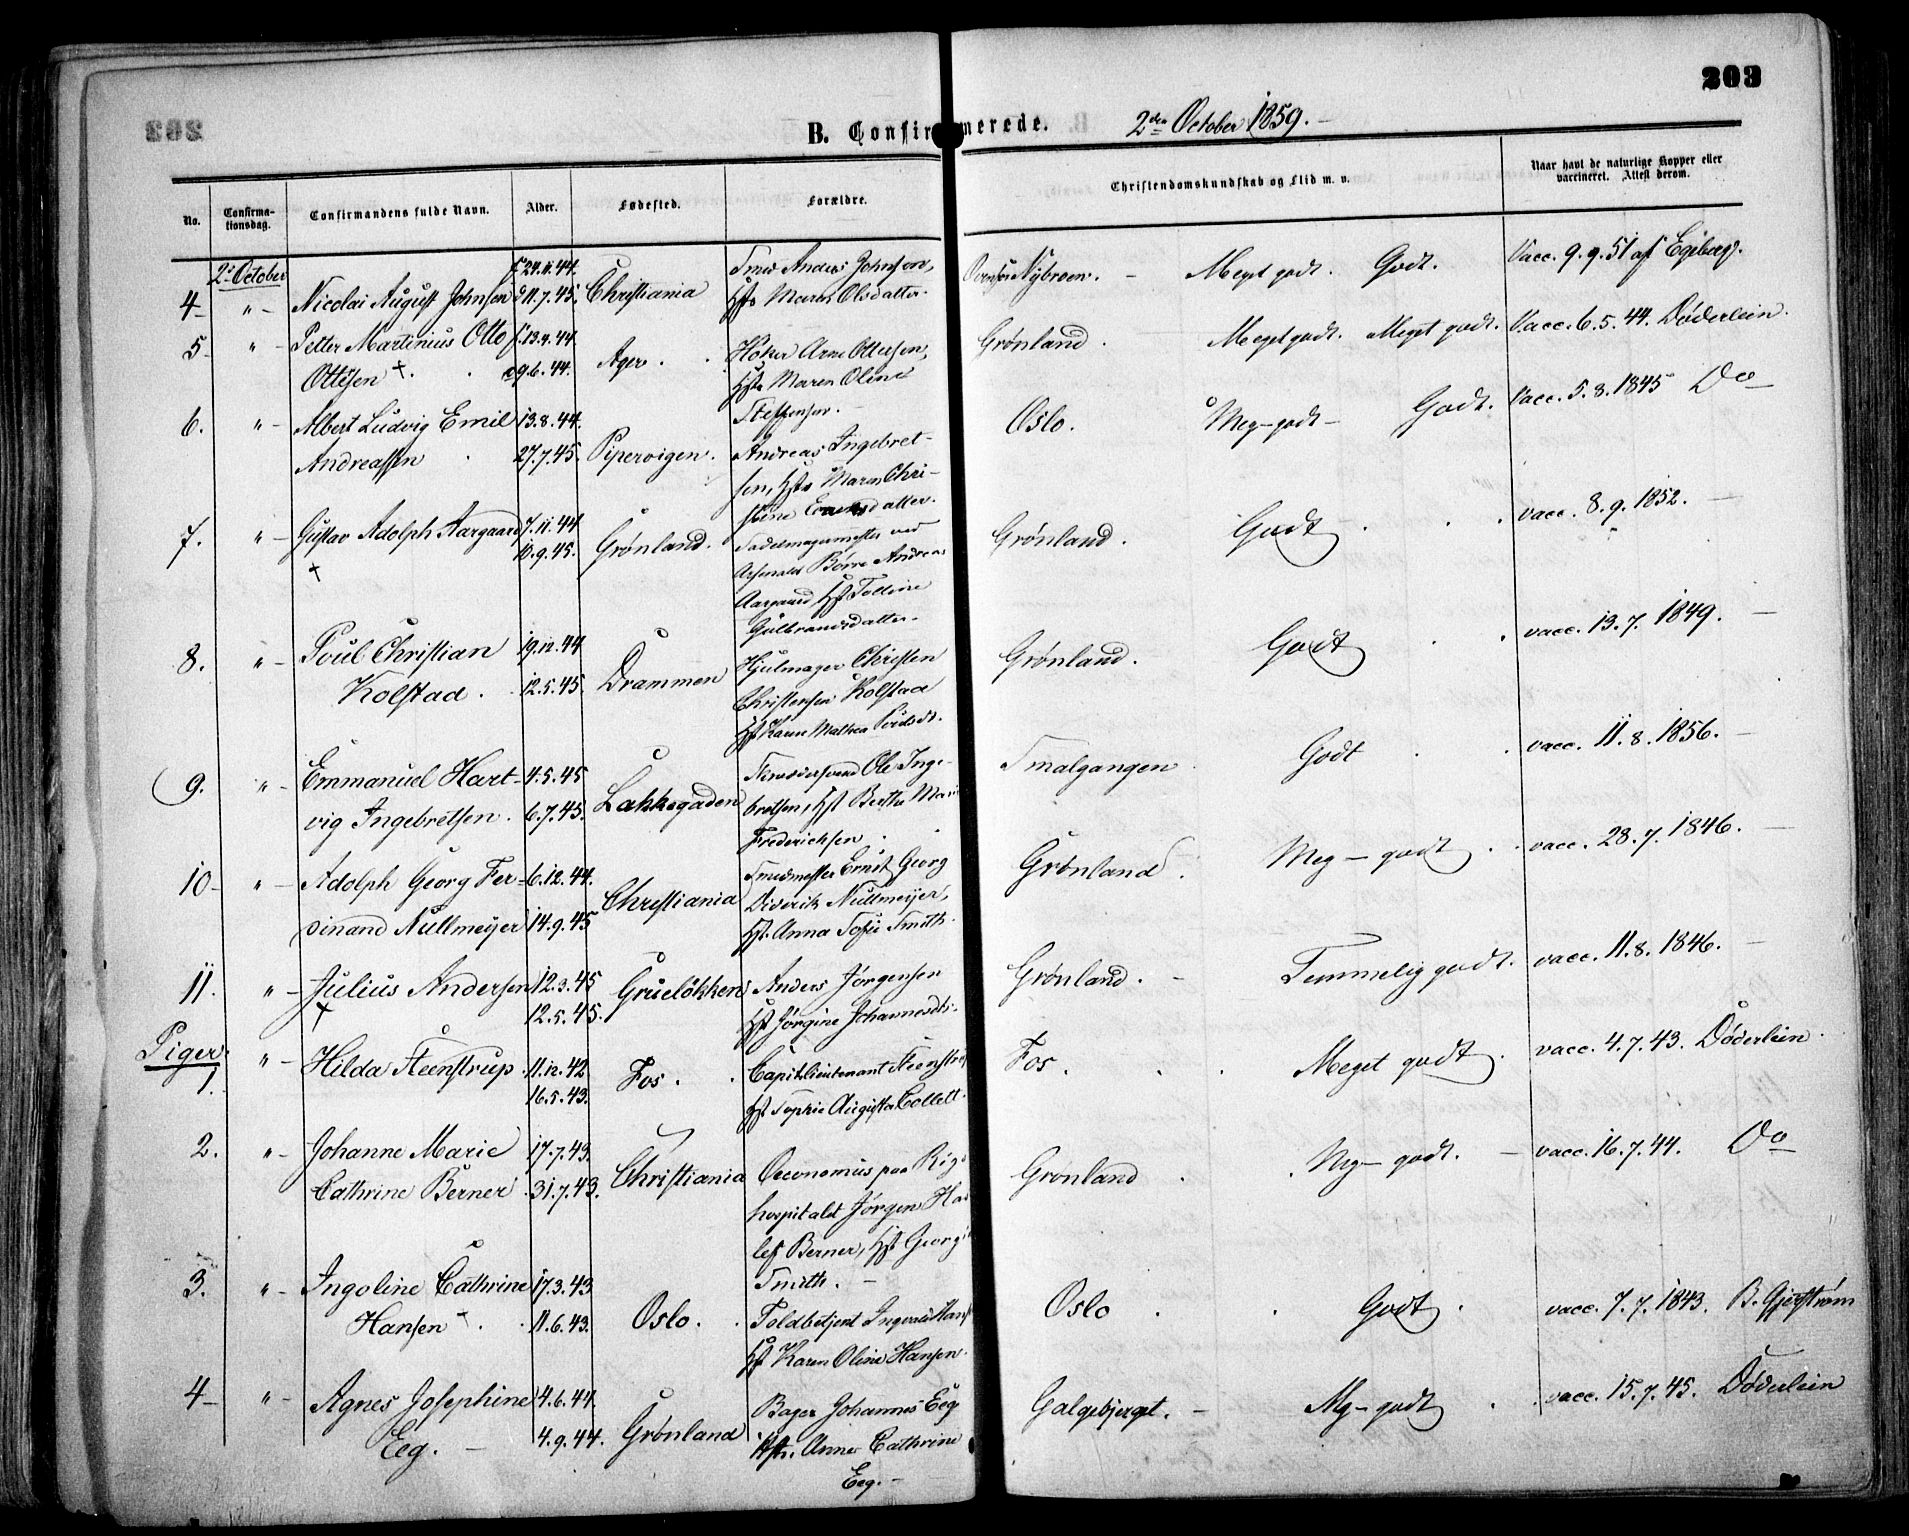 203
B. Confirmerede. 2den October 1859.
No.
Confirma-
tionsdag.
Confirmandens fulde Navn.
Alder.
Fødested.
Forældre.
Christendomskundskab og Flid m. v.
Naar havt de naturlige Kopper eller
vaccineret. Attest derom.
2. October f 24.11.44. Smed Anders Johnsen,
4 " Nicolai August Johnsen d 11.7.45. Christiania Hst. Maren Olsdatter. Nybroen. Meget godt. Godt. Vacc. 9.9.51 af Egeberg.
5 " Petter Martinius Otto f. 13.4.44 Høker Arne Ottersen, Grønland. Meget godt. Meget godt. Vacc. 6.5.44. Døderlein.
Ottesen +. d 9.6.44. Agers. Hst. Maren Oline
Steffensen.
6. " Albert Ludvig Emil 13.8.44. Oslo. Meg-godt- Godt. Vacc. 5.8.1845 Do
Andreassen 27.7.45. Pipervigen. Andreas Ingebret-
sen, Hst. Maren Chri-
stine datter.
7. " Gustav Adolph Aargaard 7.11.44 Grønland. Sadelmagermester ved Grønland. Godt vacc. 8.9.1852.
+ 10.9.45. Arsenalet Børre Andreas
Aargaard, Hst. Tolline
Gulbrandsdatter.
8. " Poul Christian 19.12.44 Drammen Hjulmager Christen Grønland. Godt vacc. 13.7.1849.
Kolstad. 12.5.45. Christensen Kolstad
Hst Karen Mathea
9. " Emmanuel Hart- 4.5.45 Ole Inge- Smalgangen Godt vacc. 11.8.1856.
vig Ingebretsen. 6.7.45. Lakkegaden bretsen, Hst Berthe Marie
Frederichsen.
10 " Adolph Georg Fer- 6.12.44. Christiania Smedmester Ernst Georg Grønland. Meg-godt. vacc. 28.7.1846.
dinand Nullmeijer 14.9.45 Diderik Nullmeijer,
Hst. Anna Sofie Smith.
11. " Julius Andersen 12.3.45 Grueløkken Anders Jørgensen Grønland. Temmelig godt. vacc. 11.8.1846.
+ 12.5.45. Hst Jørgine Johannesdtr.
Piger.
1. " Hilda Steenstrup 11.12.42 Fos. Capitlieutenant Steenstrup Fos. Meget godt. vacc. 4.7.43. Døderlein.
16.5.43. Hst Sophie Augusta Collett.
2. " Johanne Marie 17.7.43. Christiania Oeconomus paa Rigs Grønland. Meg-godt. vacc. 16.7.44. Do
Cathrine Berner. 31.7.43. hospitalet Jørgen Had
lef Berner, Hst Georg
Smith.
3. " Ingoline Cathrine 17.3.43 Oslo. Oslo. Godt. vacc. 7.7.1843. B. Gjerstrøm
Hansen + 11.6.43. Toldbetjent Ingvald Hans
Hst Karen Oline Hansen.
4 " Agnes Josephine 4.6.44. Grønland Bager Johannes Eeg Galgebjerget. Mg-godt vacc. 15.7.45. Døderlein
Eeg. 4.9.44. Hst. Anne Cathrine
Eeg.